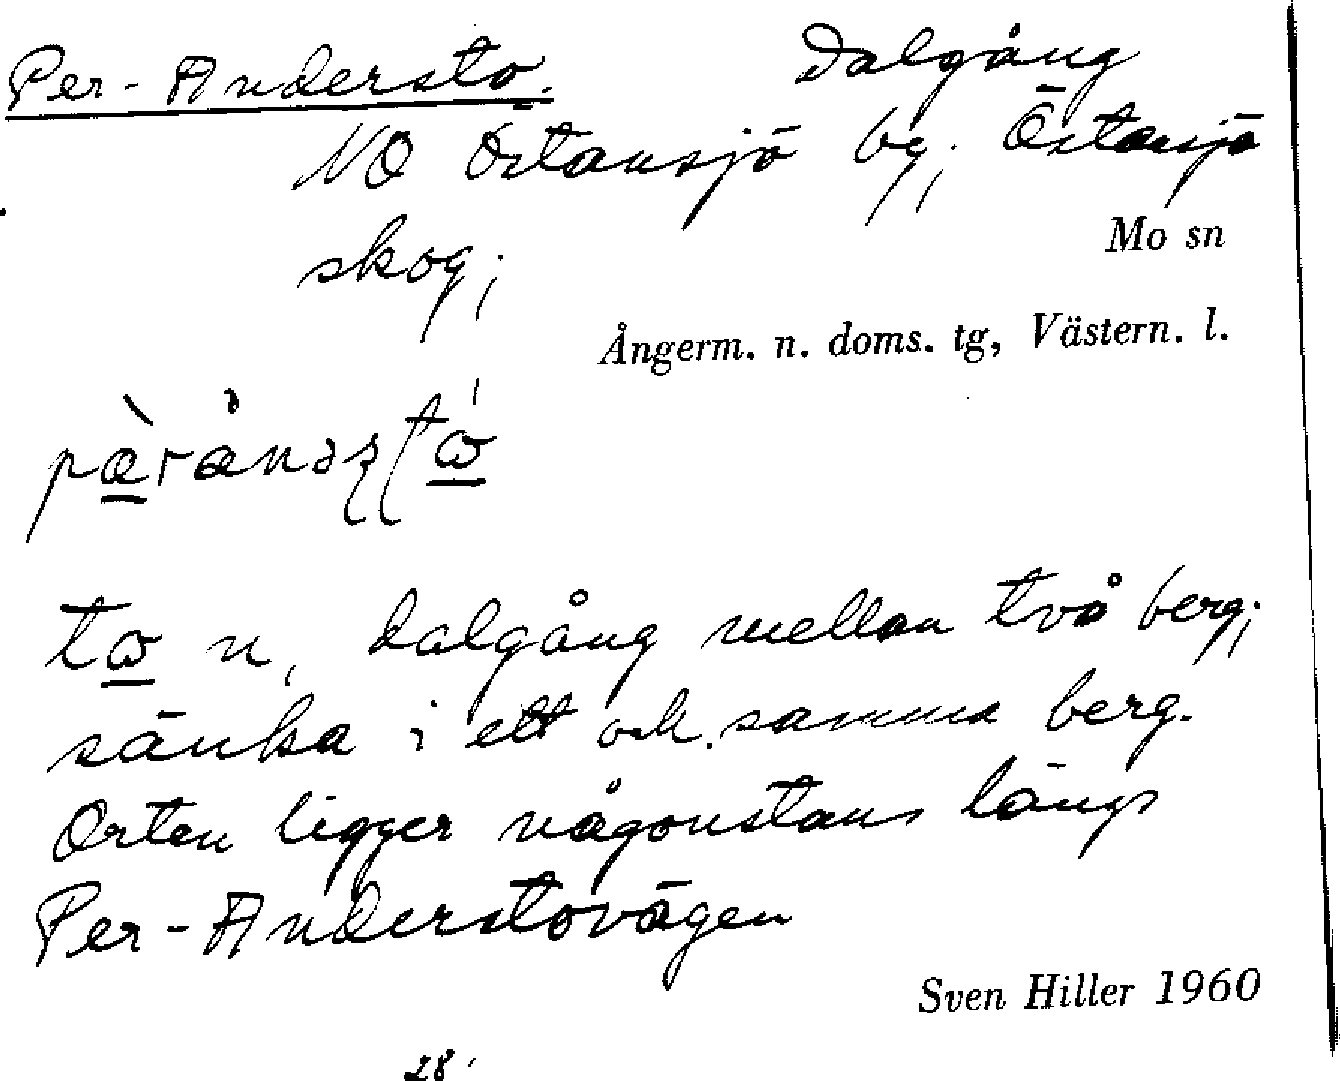 Per-Anderstö. Dalgång
NO Östansjö by; Östansjö
skog;
Mo sn
Ångerm. n. doms. tg, Västern. l.
tω n, dalgång mellan två berg;
sänka i ett och samma berg.
Orten ligger någonstans längs
Per-Anderstövägen
Sven Hiller 1960
28